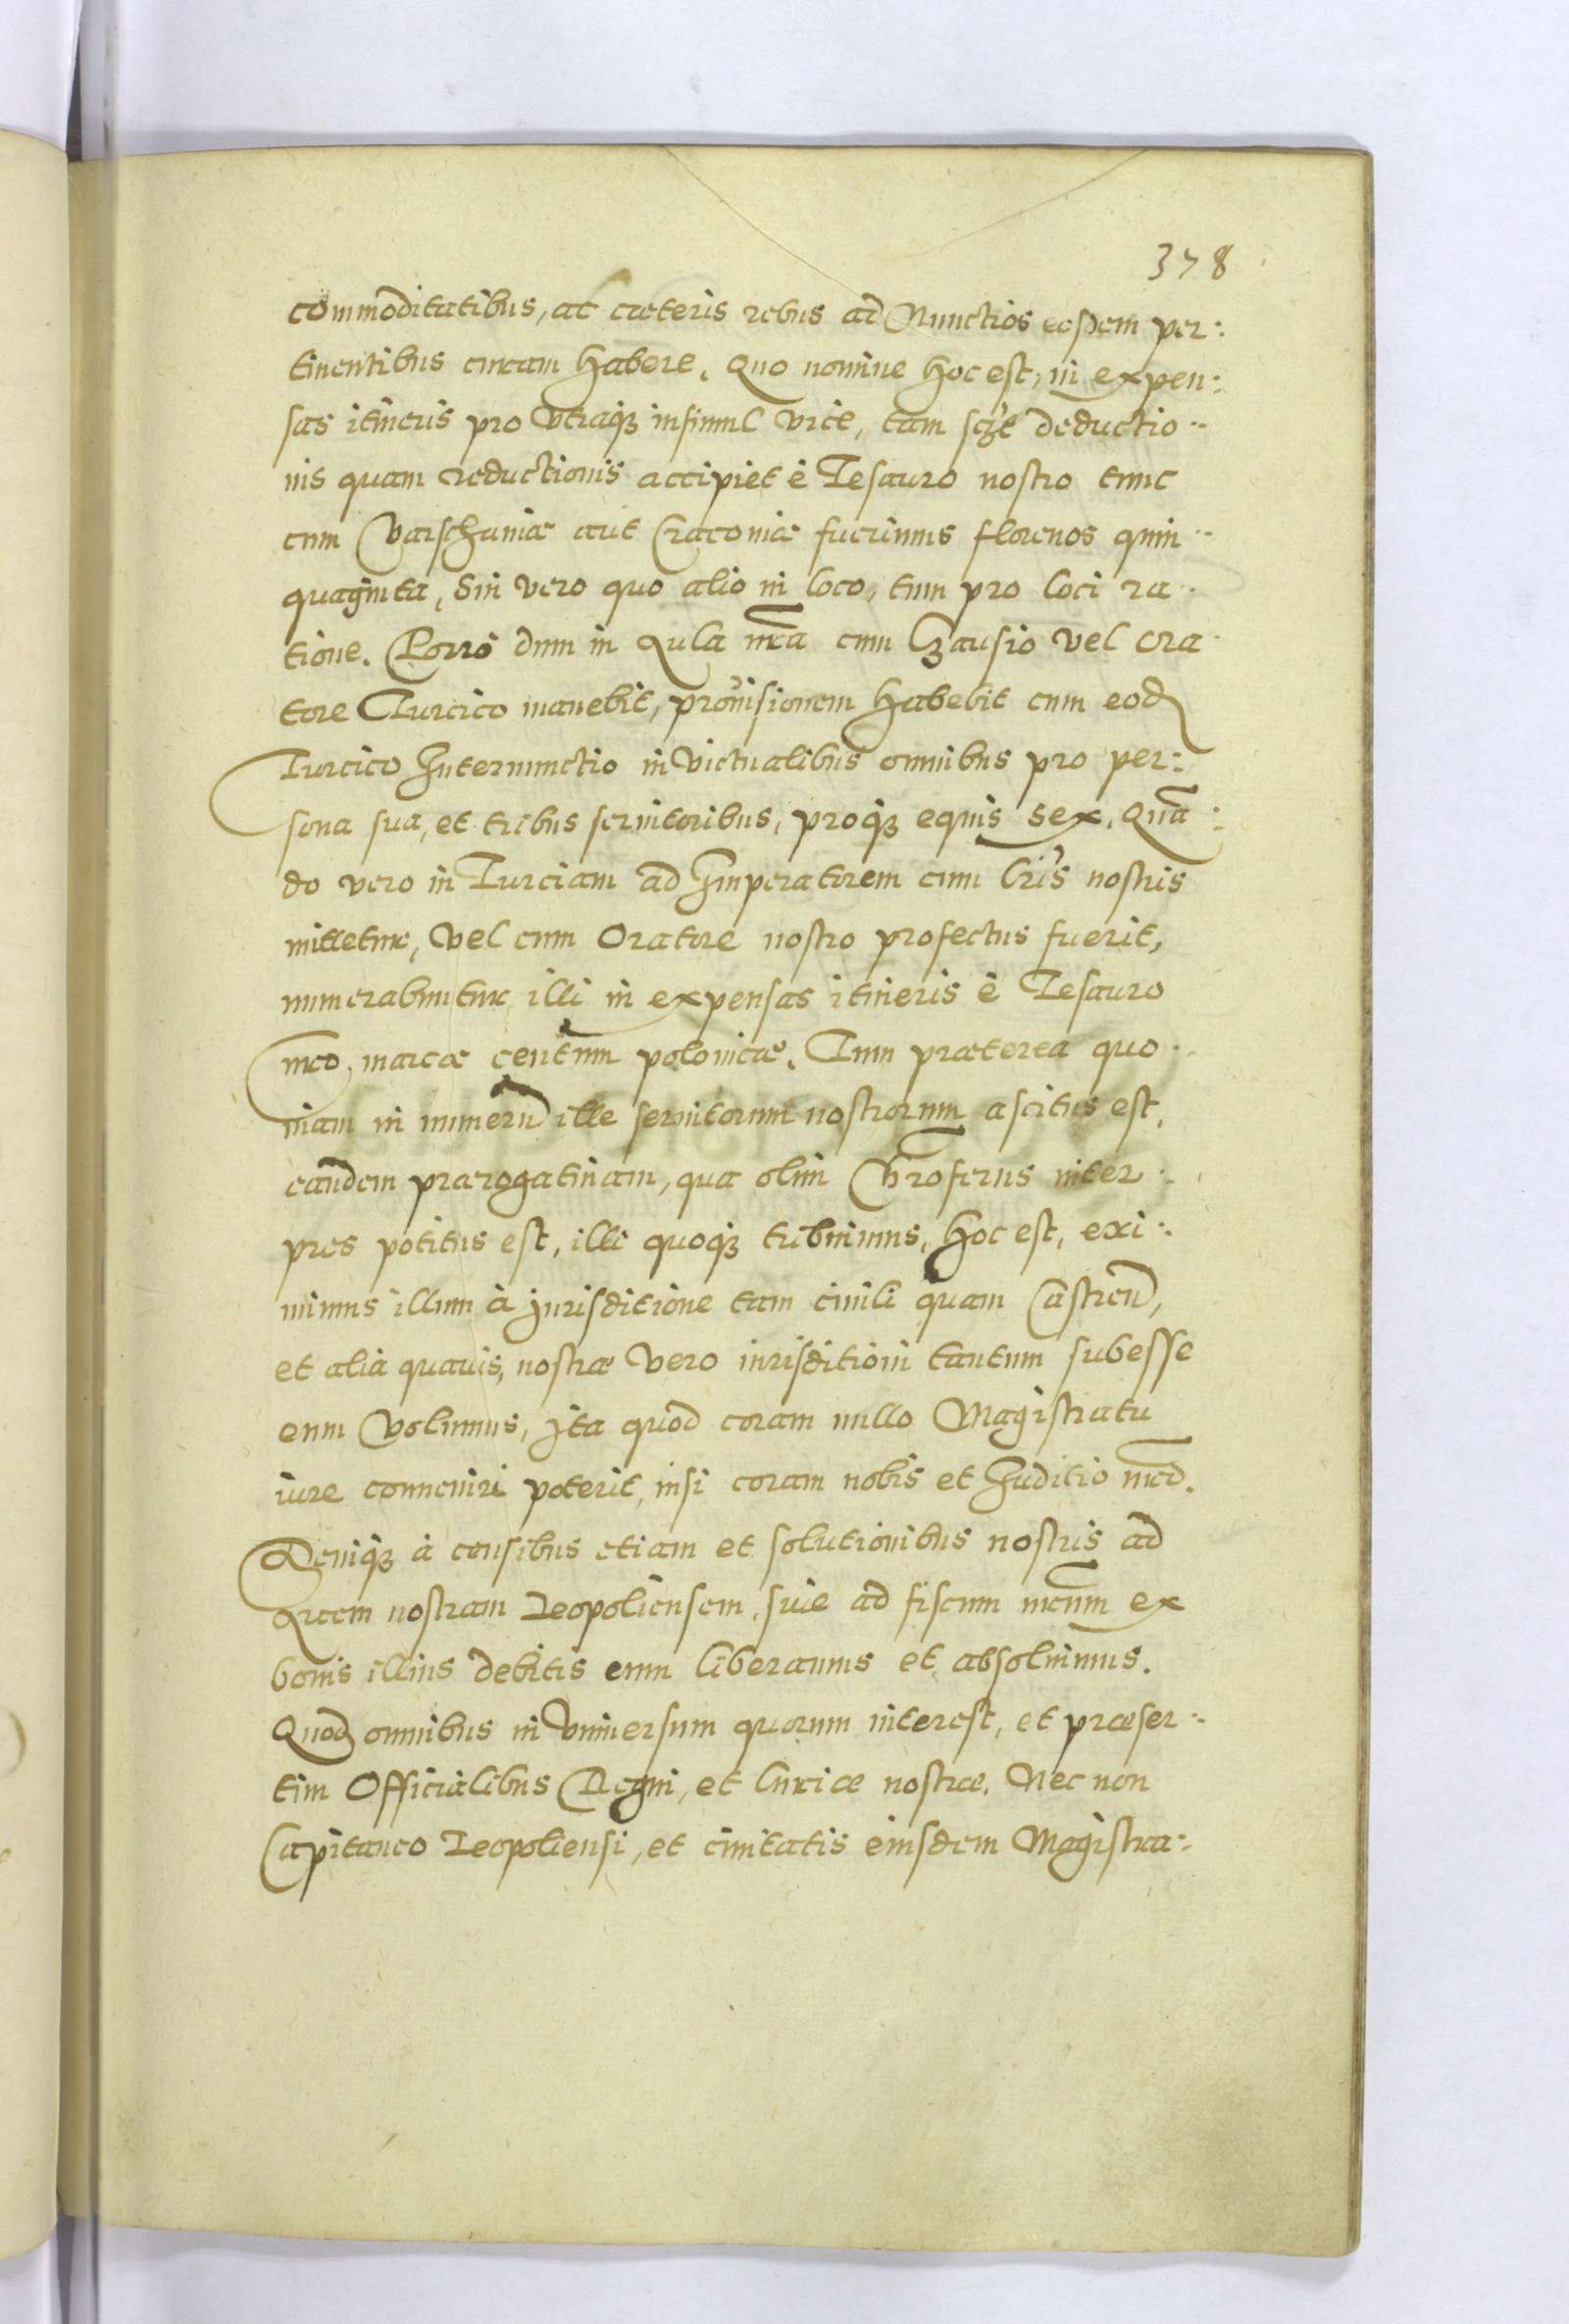 378
commoditatibus, ac cæteris rebus ad Nunctios eosdem per:
tinentibus curam habere. Quo nomine hoc est, in expen:
sas itineris pro utraqꝫ insimul vice, tam sczt deductio:
nis quam reductionis accipiet è Tesauro nostro tunc
cum Varschauiæ aut Cracouiæ fuerimus florenos quin:
quaginta, Sin vero quo alio in loco, tum pro loci ra:
tione. Porrò dum in Aula nr̃a cum Czausio vel Ora:
tore Turcico manebit, prouisionem habebit cum eod
Turcico Internunctio in Victualibus omnibus pro per:
sona sua, et tribus seruitoribus, proqꝫ equis sex. Quã:
do vero in Turciam ad Imperatorem cum Lr̃is nostris
mittetur, vel cum Oratore nostro profectus fuerit,
numerabuntur illi in expensas itineris è Tesauro
nr̃o, marcæ centum polonicæ. Tum præterea quo:
niam in numerũ ille seruitorum nostrorum ascitus est,
eandem prærogatiuam, qua olim Chroferus inter:
pres potitus est, illi quoqꝫ tribuimus, hoc est, exi:
mimus illum à Jurisditione tam ciuili quam Castreñ,
et alia quauis, nostræ vero iurisditioni tantum subesse
eum volumus, Ita quod coram nullo Magistratu
iure conueniri poterit, nisi coram nobis et Juditio nr̃o.
Deniqꝫ à censibus etiam et solutionibus nostris ad
Arcem nostram Leopoliensem, siue ad fiscum nr̃um ex
bonis illius debitis eum liberamus et absoluimus.
Quod omnibus in Vniuersum quorum interest, et præser:
tim Officialibus Regni, et Curiæ nostræ. Nec non
Capitaneo Leopoliensi, et ciuitatis eiusdem Magistra: